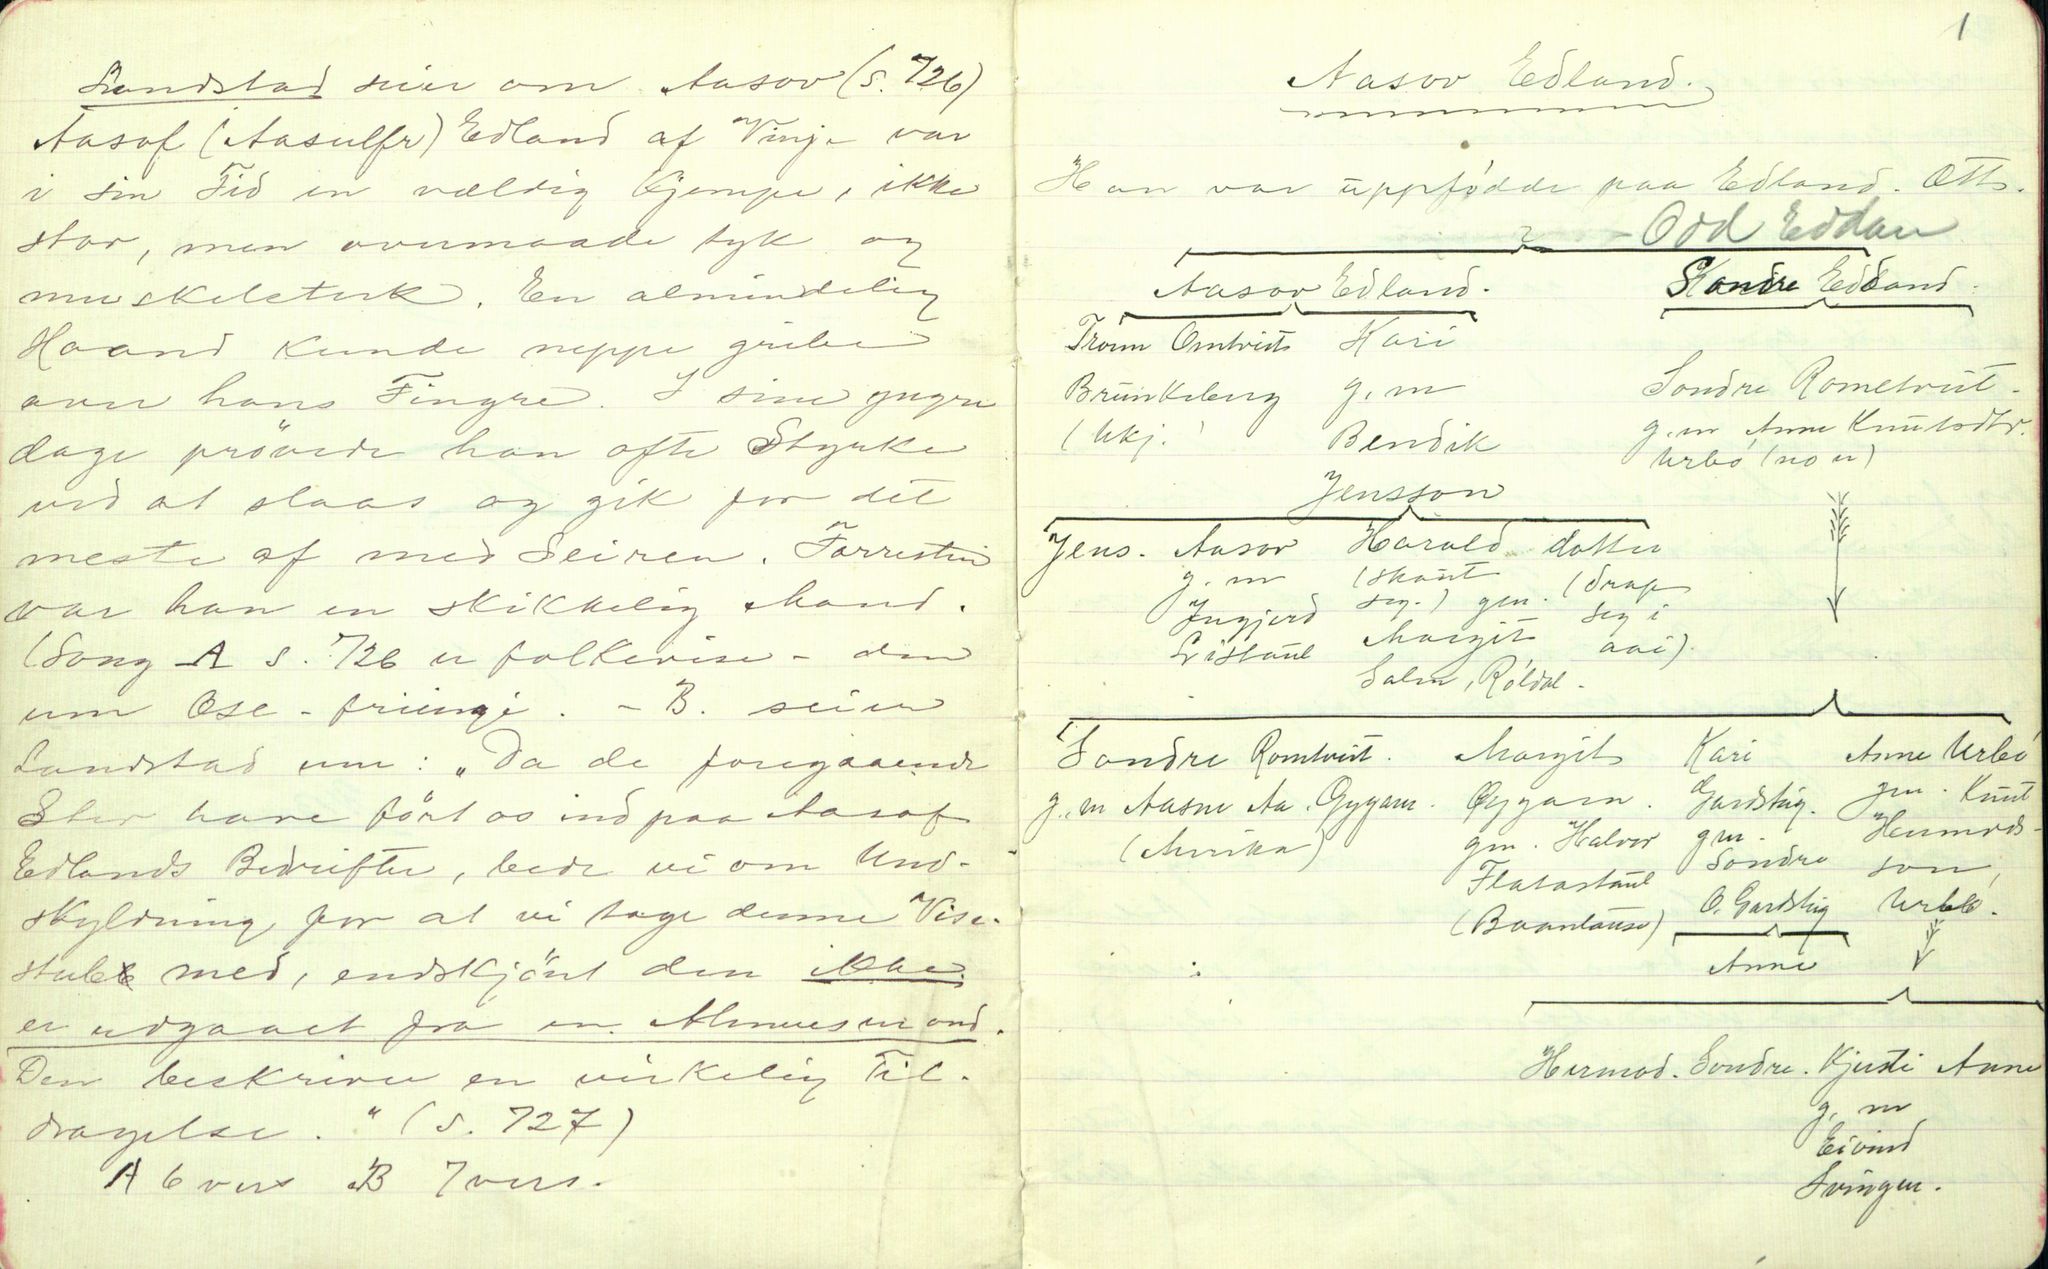 Landstad seier om Aasov (s. 726)
Aasof (Aasulfr) Edland af Vinje var
i sin Tid en vældig Kjempe, ikke
stor, men overmaade tyk og
muskelsterk. En almindelig
Haand kunde neppe gribe
over hans Fingre. I sine yngre
dage prövede han ofte Styrke
ved at slaas og gik for det
meste af med Seiren. Forresten
var han en skikkelig Mand.
(Song A s. 726 er folkevise - den
um Ose-friingi. - B. seier
Landstad um: "Da de foregaaende
Stev have fört os ind paa Aasof
Edlands Bedrifter, bede vi om Und-
skyldning for at vi tage denne Vise-
stubb med, endskjönt den ikke
er udgaaet fra en Almuesmand.
Den beskriver en virkelig Til-
dragelse." (s. 727)
A 6 vers B 7 vers.
1
Aasov Edland.
Han var uppfødde paa Edland. Ætt.
? - Odd Eddan
Aasov Edland. Sondre Edland.
Tronn Omtveit Kari
Brunkeberg g. m Sondre Rometveit.
(Ukj.) Bendik g. m Anne Knutsdtr.
Jensson Urbö (no u)
Jens. Aasov Harald dotter
g. m (skaut (drap
Ingjerd seg.) gm. seg i
Listaul Margit aai).
Salm, Röldal.
Sondre Romtveit. Margit Kari Anne Urbö
g. m Aasne Aa. Øygarn. Øygarn. Gardstig. gm. Knut
(Amerika) gm. Halvor gm. Hermods-
Flatastaul Sondre son,
(Baanlause) O. Gardstig Urbö.
Anne
Hermod. Sondre. Kjersti Anne
g. m
Eivind
Svingen.